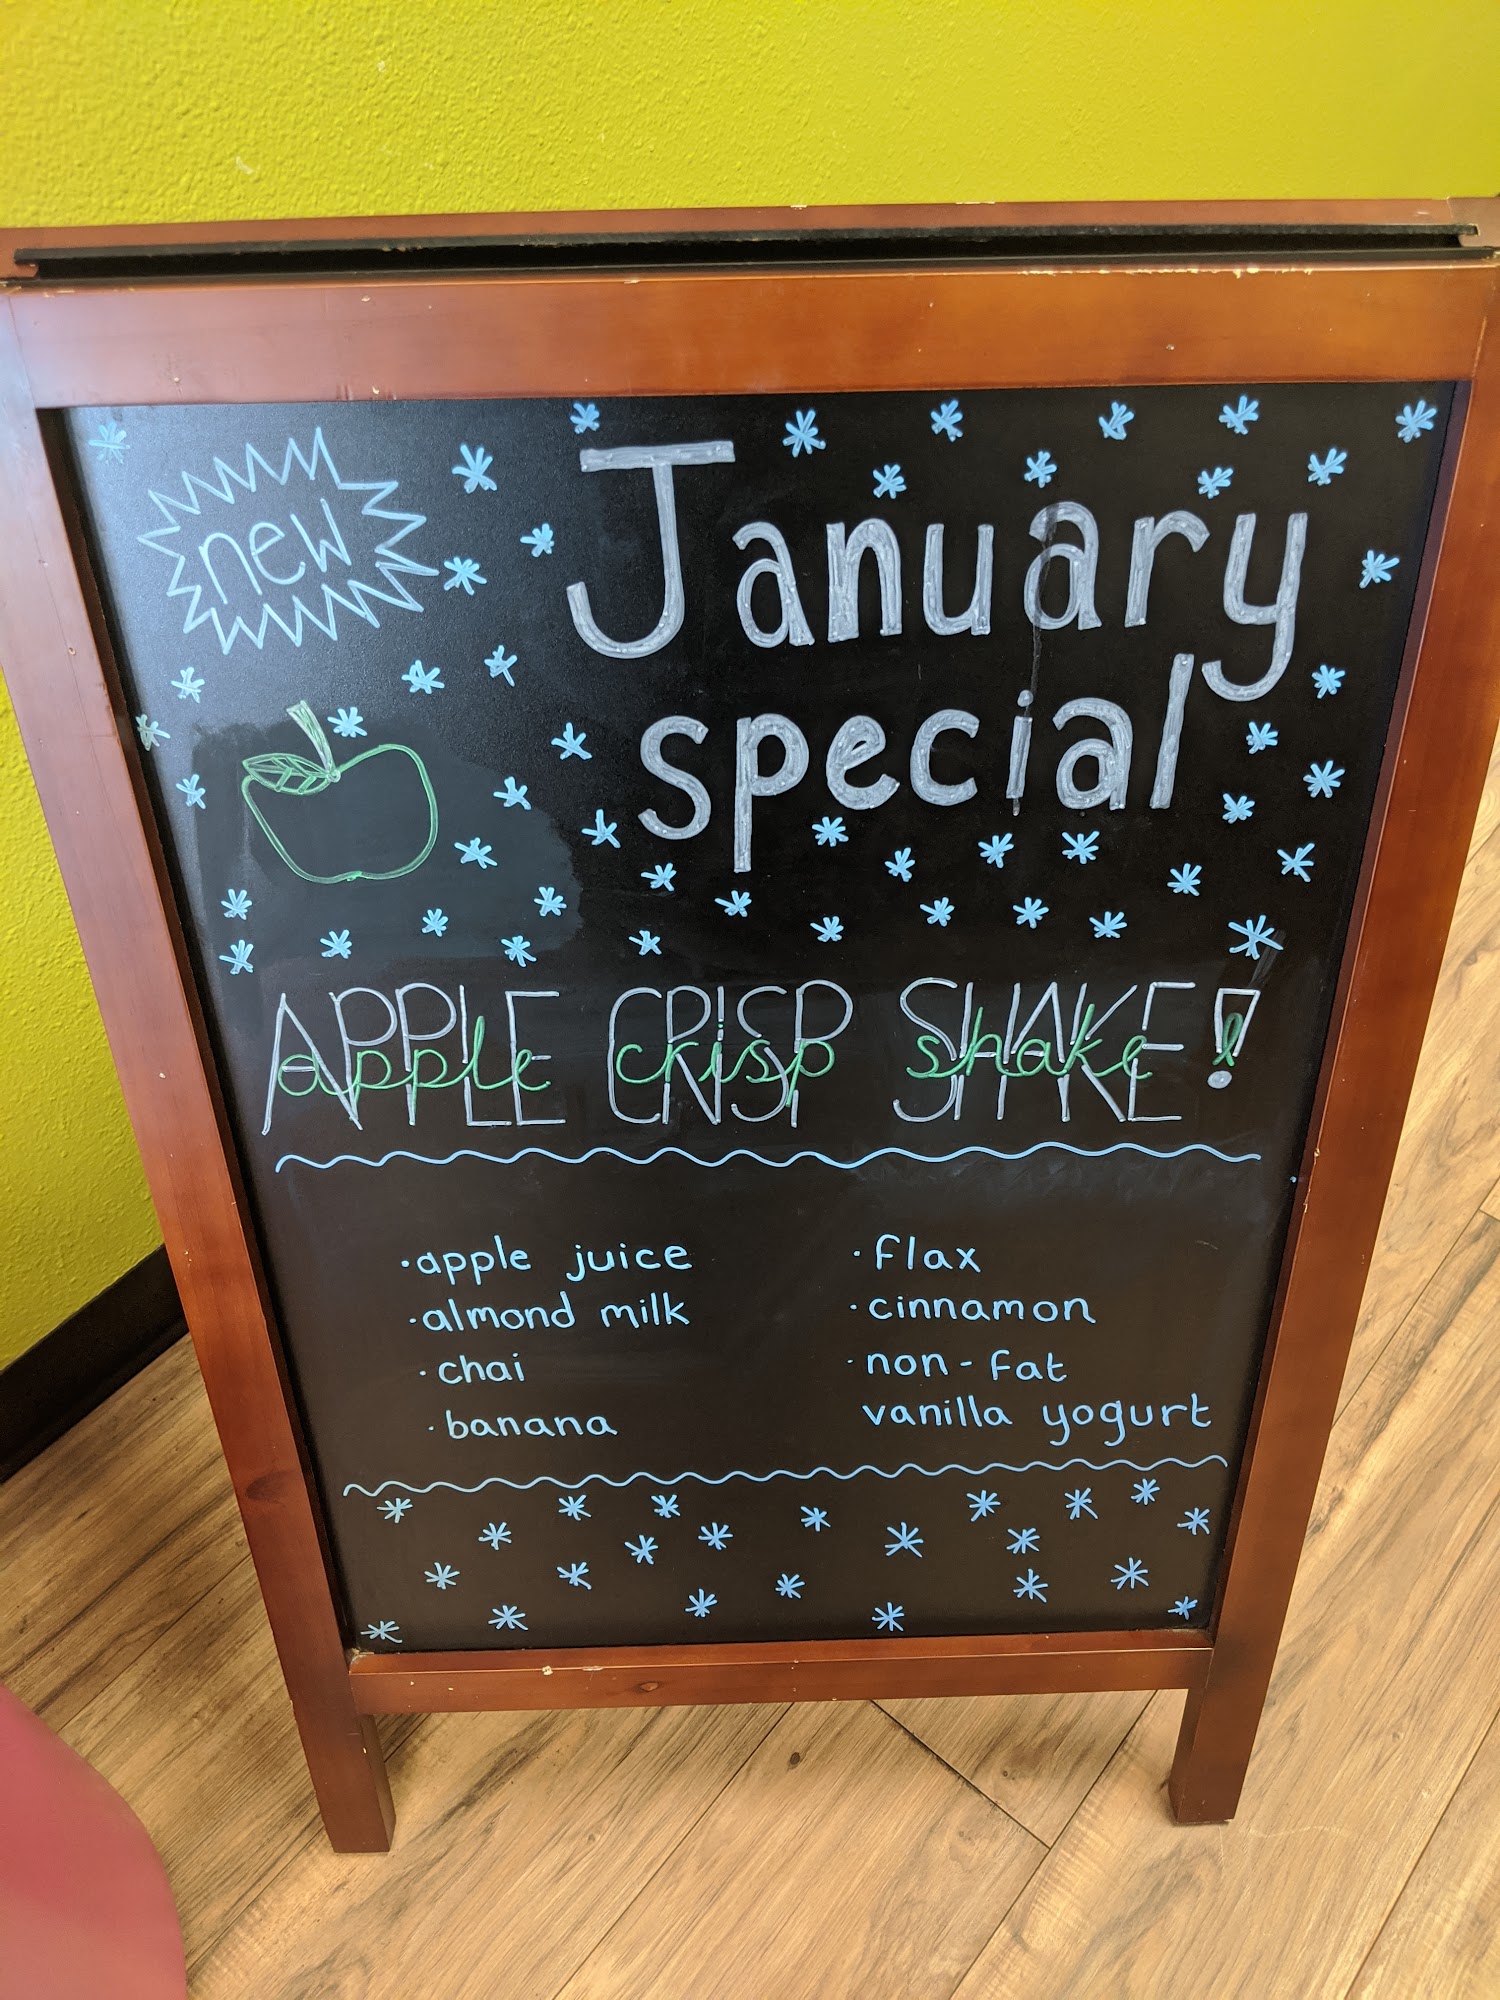 new
January
special
APPLE CRISP SHAKE!
apple crisp shake!
· apple juice
· almond milk
· chai
· banana
· flax
· cinnamon
· non-fat
vanilla yogurt